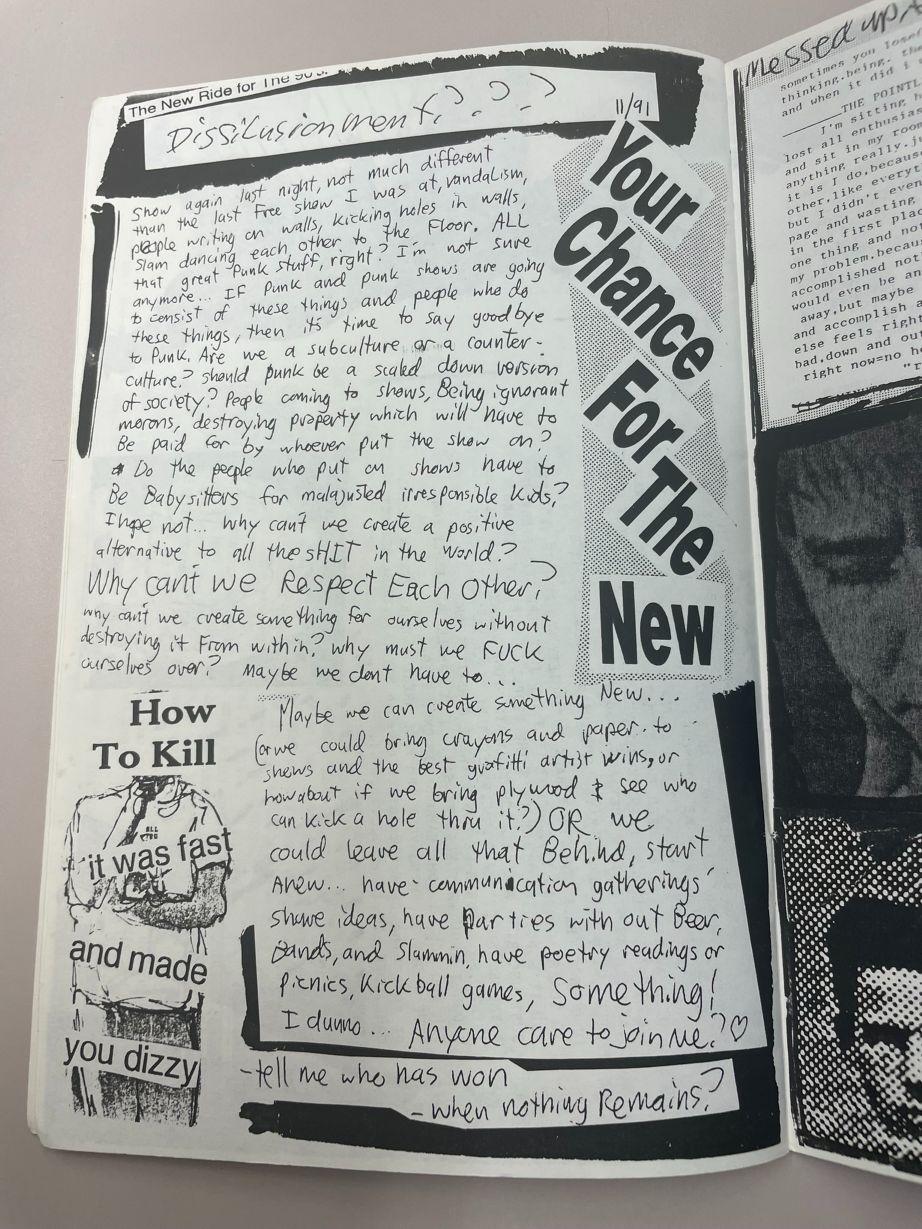 The New Ride for The 90's.
Dissilusionment???
11/91
Show again last night, not much different
than the last Free show I was at, vandalism,
people writing on walls, kicking holes in walls,
slam dancing each other to the Floor. ALL
that great Punk stuff, right? I'm not sure
anymore... IF Punk and punk shows are going
to consist of these things and people who do
these things, then its time to say goodbye
to Punk. Are we a subculture or a counter-
culture? should punk be a scaled down version
of society? People coming to shows, Being ignorant
morons, destroying property which will have to
Be paid for by whoever put the show on?
Do the people who put on shows have to
Be Babysitters for malajusted irresponsible kids?
I hope not... why cant we create a positive
alternative to all the sHIT in the world?
Why can't we Respect Each Other?
why can't we create something for ourselves without
destroying it From within? why must we FUCK
ourselves over? Maybe we dont have to...
Your
Chance
For
The
New
Maybe we can create something New...
(or we could bring crayons and paper to
shows and the best grafitti artist wins, or
how about if we bring plywood & see who
can kick a hole thru it?) OR we
could leave all that Behind, start
Anew... have communication gatherings
share ideas, have parties with out Beer,
Bands, and Slammin, have poetry readings or
picnics, Kickball games, Something!
I dunno... Anyone care to join me?♡
-tell me who has won
- when nothing Remains?
How
To Kill
it was fast
and made
you dizzy
Messed up
sometimes you
thinking.being.
and when it did i
THE
I'm sitting
lost all
and sit in my
anything really.
it is I do,
other,like
but I didn't
page and wasting
in the first
one thing and
my problem.
accomplished
would even be
away.but maybe
and accomplish
else feels
bad,down and
right now=no